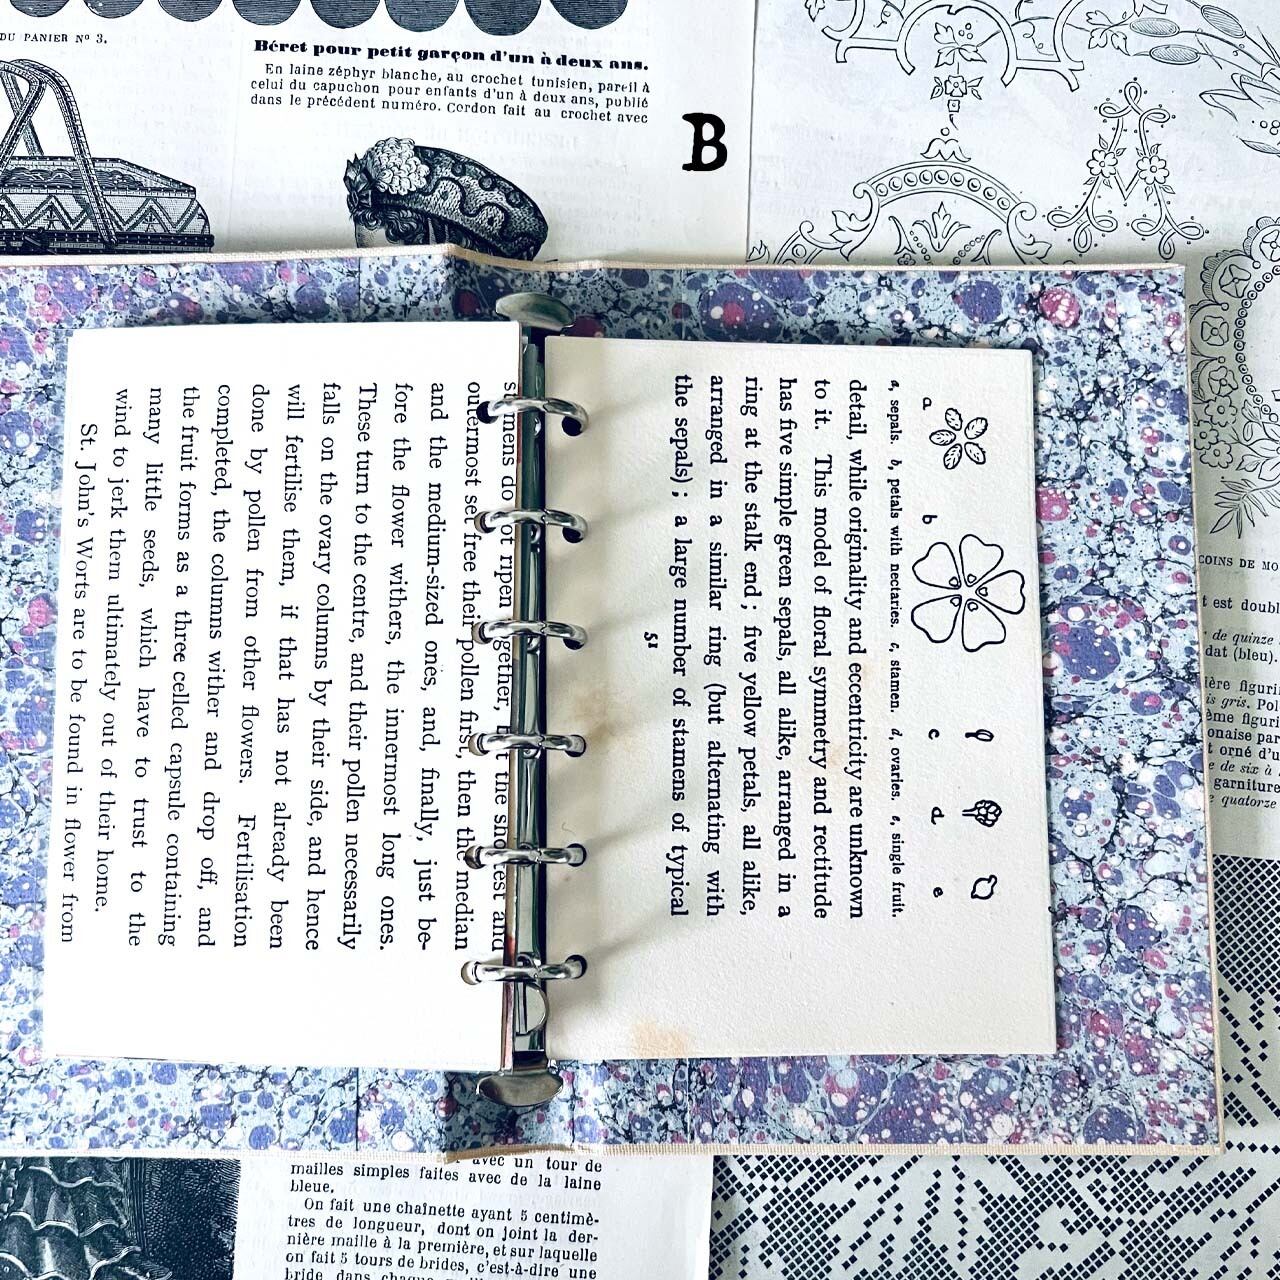 DU PANIER Nº 3.
Béret pour petit garçon d'un à deux ans.
En laine zéphyr blanche, au crochet tunisien, pareil à
celui du capuchon pour enfants d'un à deux ans, publié
dans le précédent numéro. Cordon fait au crochet avec
B
a b c d e
a, sepals. b, petals with nectaries. c, stamen. d, ovaries. e, single fruit.
detail, while originality and eccentricity are unknown
to it. This model of floral symmetry and rectitude
has five simple green sepals, all alike, arranged in a
ring at the stalk end; five yellow petals, all alike,
arranged in a similar ring (but alternating with
the sepals); a large number of stamens of typical
51
stamens do not ripen together, but the shortest and
outermost set free their pollen first, then the median
and the medium-sized ones, and, finally, just be-
fore the flower withers, the innermost long ones.
These turn to the centre, and their pollen necessarily
falls on the ovary columns by their side, and hence
will fertilise them, if that has not already been
done by pollen from other flowers. Fertilisation
completed, the columns wither and drop off, and
the fruit forms as a three celled capsule containing
many little seeds, which have to trust to the
wind to jerk them ultimately out of their home.
St. John's Worts are to be found in flower from
COINS DE MO
t est doubl
de quinze
dat (bleu).
ière figuri
is gris. Pol
ème figuri
onaise par
t orné d'u
e de six à
garniture
e quatorze
avec un tour de
mailles simples faites avec de la laine
bleue.
On fait une chaînette ayant 5 centimè-
tres de longueur, dont on joint la der-
nière maille à la première, et sur laquelle
on fait 5 tours de brides, c'est-à-dire une
bride dans chaque